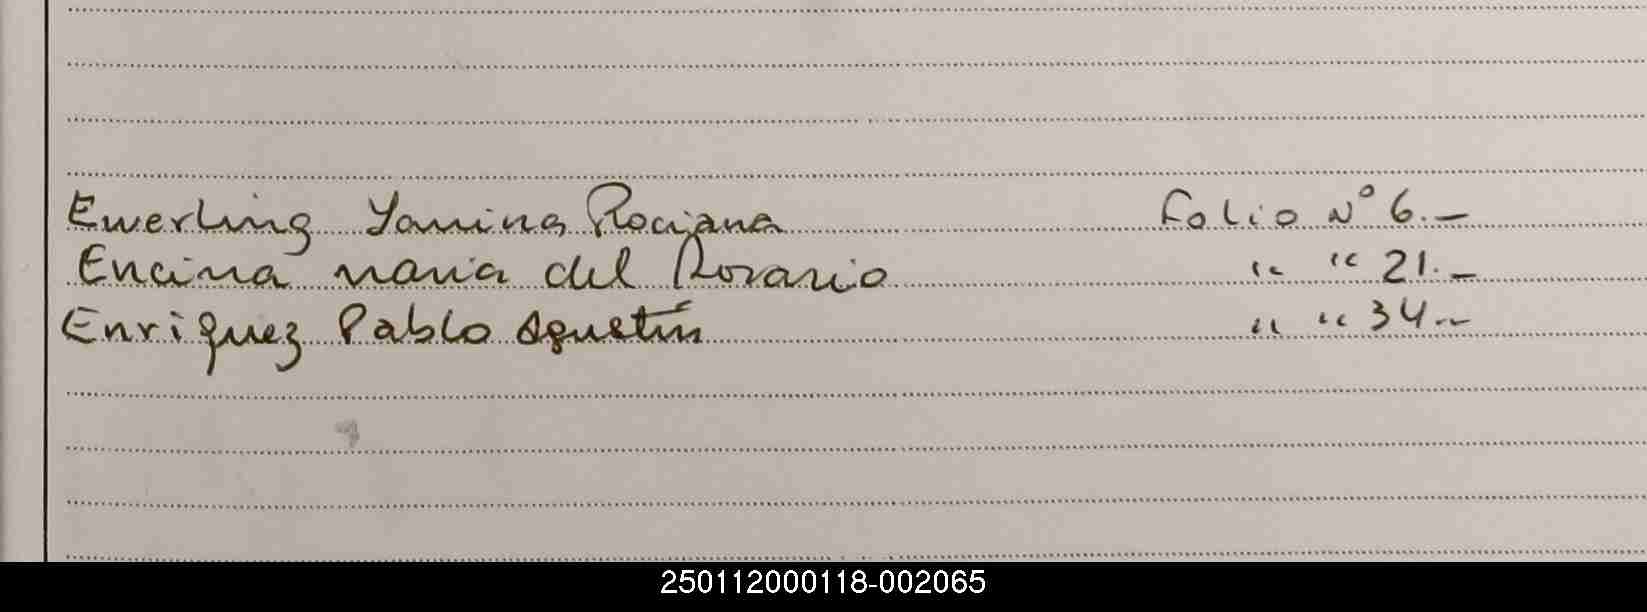 Ewerling Yanina Rociana Folio Nº 6.-
Encina maria del Rosario " " 21.-
Enriquez Pablo Agustín " " 34.-
250112000118-002065